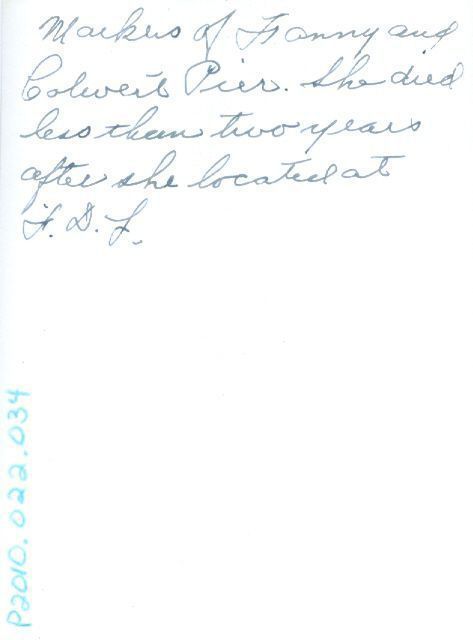 Markers of Fanny and
Colwert Pier. She died
less than two years
after she located at
F. D. L.
P2010.022.034